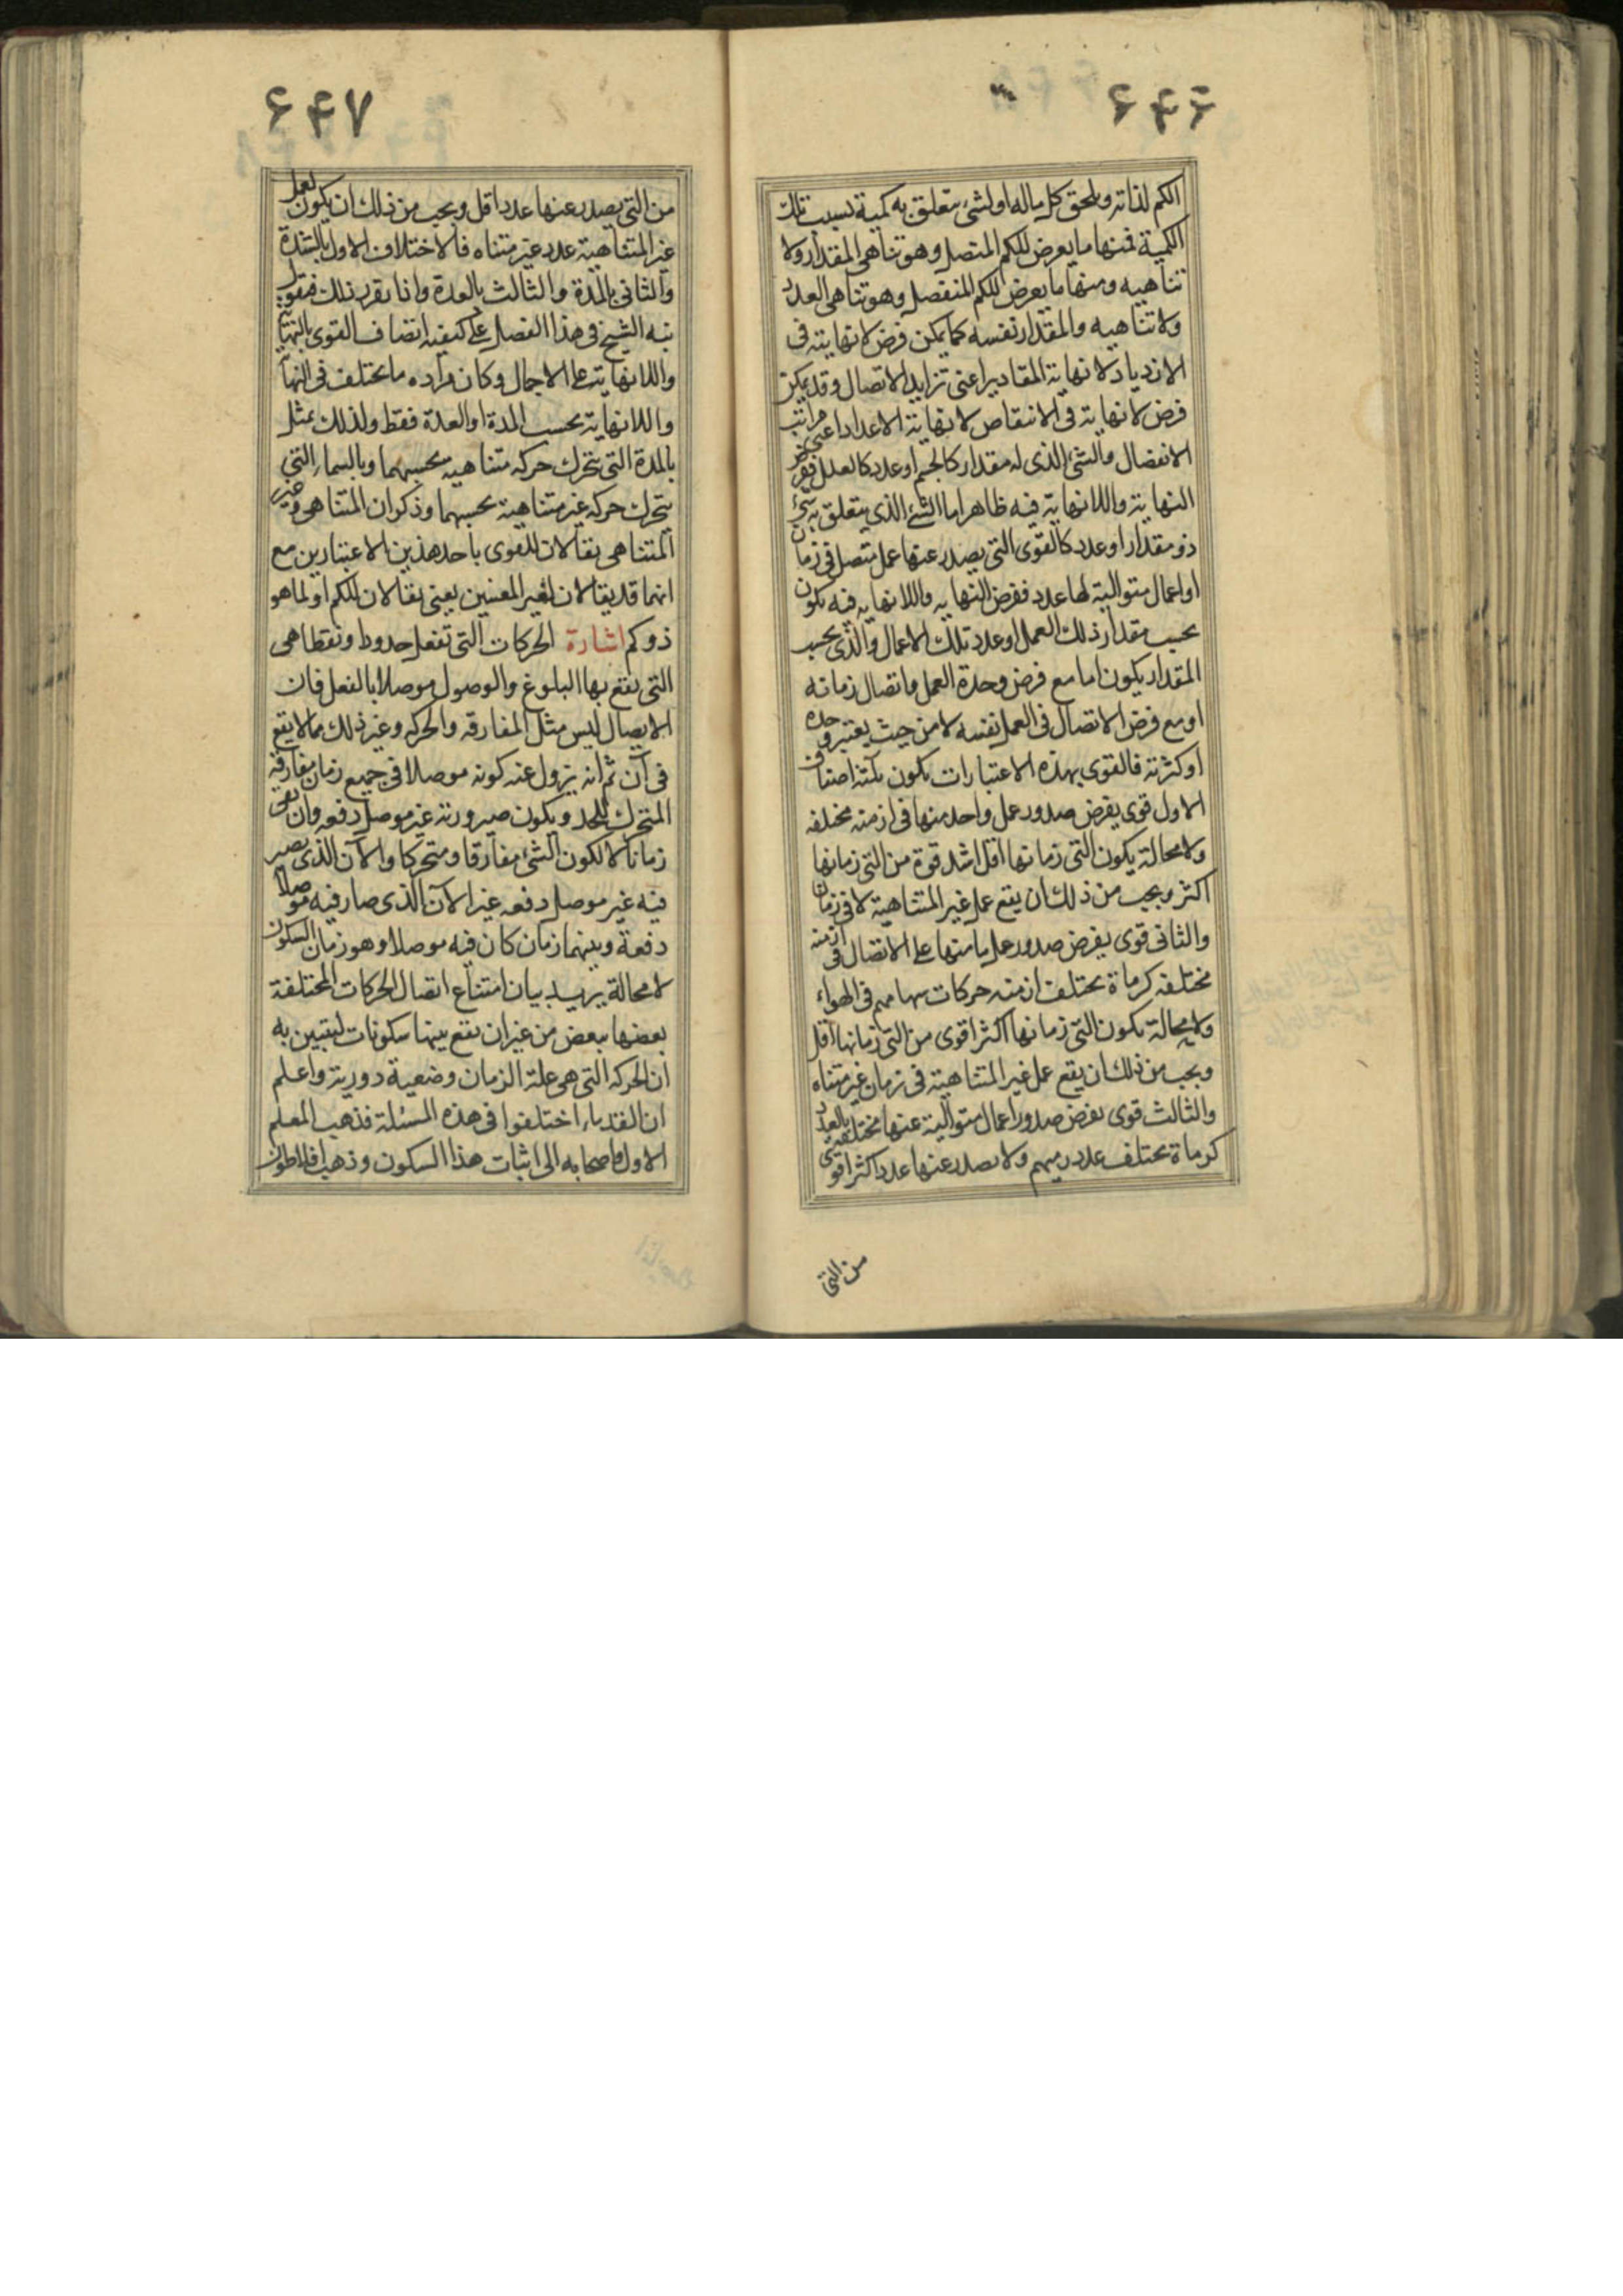 ۶۴۶
الكم لذاته ويلحق كل ماله او لشئ يتعلق به كمية بسبب تلك
الكمية فمنها ما يعرض للكم المتصل وهو تناهى المقدار ولا
تناهيه ومنها ما يعرض للكم المنفصل وهو تناهى العدد
ولا تناهيه والمقدار نفسه كما يمكن فرض لا نهايته فى
الازدياد لا نهاية المقادير اعنى تزايد الاتصال وقد يمكن
فرض لا نهاية فى الانتقاص لا نهاية الاعداد اعنى مراتب
الانفصال والشئ الذى له مقدار كالجسم او عدد كالعلل ففرض
النهاية واللانهاية فيه ظاهر اما الشئ الذى يتعلق به شئ
ذو مقدار او عدد كالقوى التى يصدر عنها عمل متصل فى زمان
او اعمال متوالية لها عدد ففرض النهايه واللانهايه فيه يكون
بحسب مقدار ذلك العمل او عدد تلك الاعمال والذى بحسب
المقدار يكون اما مع فرض وحدة العمل واتصال زمانه
او مع فرض الاتصال فى العمل نفسه لا من حيث يعتبر وحده
او كثرته فالقوى بهذه الاعتبارات يكون ثلثة اصناف
الاول قوى يفرض صدور عمل واحد منها فى ازمنه مختلفه
ولا محالة يكون التى زمانها اقل اشد قوة من التى زمانها
اكثر ويجب من ذلك ان يقع عمل غير المتناهية لا فى زمان
والثانى قوى يفرض صدور عمل ما منها على الاتصال فى ازمنه
مختلفه كرماة يختلف ازمنه حركات سهامهم فى الهواء
ولا محالة يكون التى زمانها اكثر اقوى من التى زمانها اقل
ويجب من ذلك ان يقع عمل غير المتناهية فى زمان غير متناه
والثالث قوى يفرض صدور اعمال متوالية عنها مختلفة بالعدد
كرماة يختلف عدد رميهم ولا يصدر عنها عدد اكثر اقوى
من التى
۶۴۷
من التى يصدر عنها عدد اقل ويجب من ذلك ان يكون لعمل
غير المتناهية عدد غير متناه فالاختلاف الاول بالشدة
والثانى بالمدة والثالث بالعدة واذا تقرر ذلك فنقول
نبه الشيخ فى هذا الفصل على كيفية اتصاف القوى بالنهاية
واللانهاية على الاجمال وكان مراده ما يختلف فى النهاية
واللانهاية بحسب المدة او العدة فقط ولذلك يمثل
بالمدة التى يتحرك حركه متناهيه بحسبهما وبالسماء التى
يتحرك حركه غير متناهية بحسبهما وذكر ان المتناهى وغير
المتناهى يقالان للقوى باحد هذين الاعتبارين مع
انهما قد يقالان لغير المعنيين يعنى يقالان للكم او لما هو
ذو كم اشارة الحركات التى تفعل حدودا ونقطا هى
التى يقع بها البلوغ والوصول موصلا بالفعل فان
الايصال ليس مثل المفارقه والحركه وغير ذلك مما لا يقع
فى آن ثم انه يزول عنه كونه موصلا فى جميع زمان مفارقة
المتحرك للحد ويكون صيرورته غير موصل دفعه وان بقى
زمانا لا لكون الشئ مفارقا ومتحركا والآن الذى يصير
فيه غير موصل دفعه غير الآن الذى صار فيه موصلا
دفعة وبينهما زمان كان فيه موصلا وهو زمان السكون
لا محالة يريد بيان امتناع اتصال الحركات المختلفة
بعضها ببعض من غير ان يقع بينها سكونات ليتبين به
ان الحركه التى هى علة الزمان وضعية دورية واعلم
ان القدماء اختلفوا فى هذه المسئلة فذهب المعلم
الاول واصحابه الى اثبات هذا السكون وذهب افلاطون